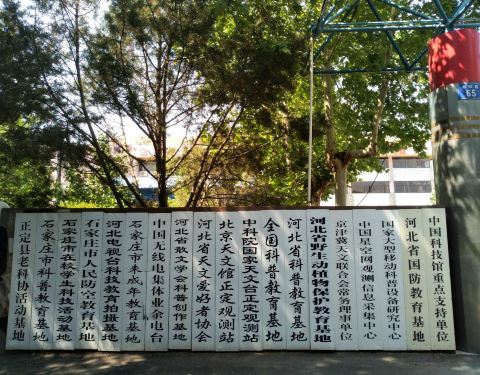 正定县老科协活动基地
石家庄市科普教育基地
石家庄市在校学生科技活动基地
石家庄市人民防空教育基地
河北电视台科技教育拍摄基地
石家庄市未成年人教育基地
中国无线电集体业余电台
河北省散文学会科普创作基地
河北省天文爱好者协会
北京天文馆正定观测站
中科院国家天文台正定观测站
全国科普教育基地
河北省科普教育基地
河北省野生动植物保护教育基地
京津冀天文联合会常务理事单位
中国星空网观测信息采集中心
国家大型移动科普设备研究中心
河北省国防教育基地
中国科技馆重点支持单位
65